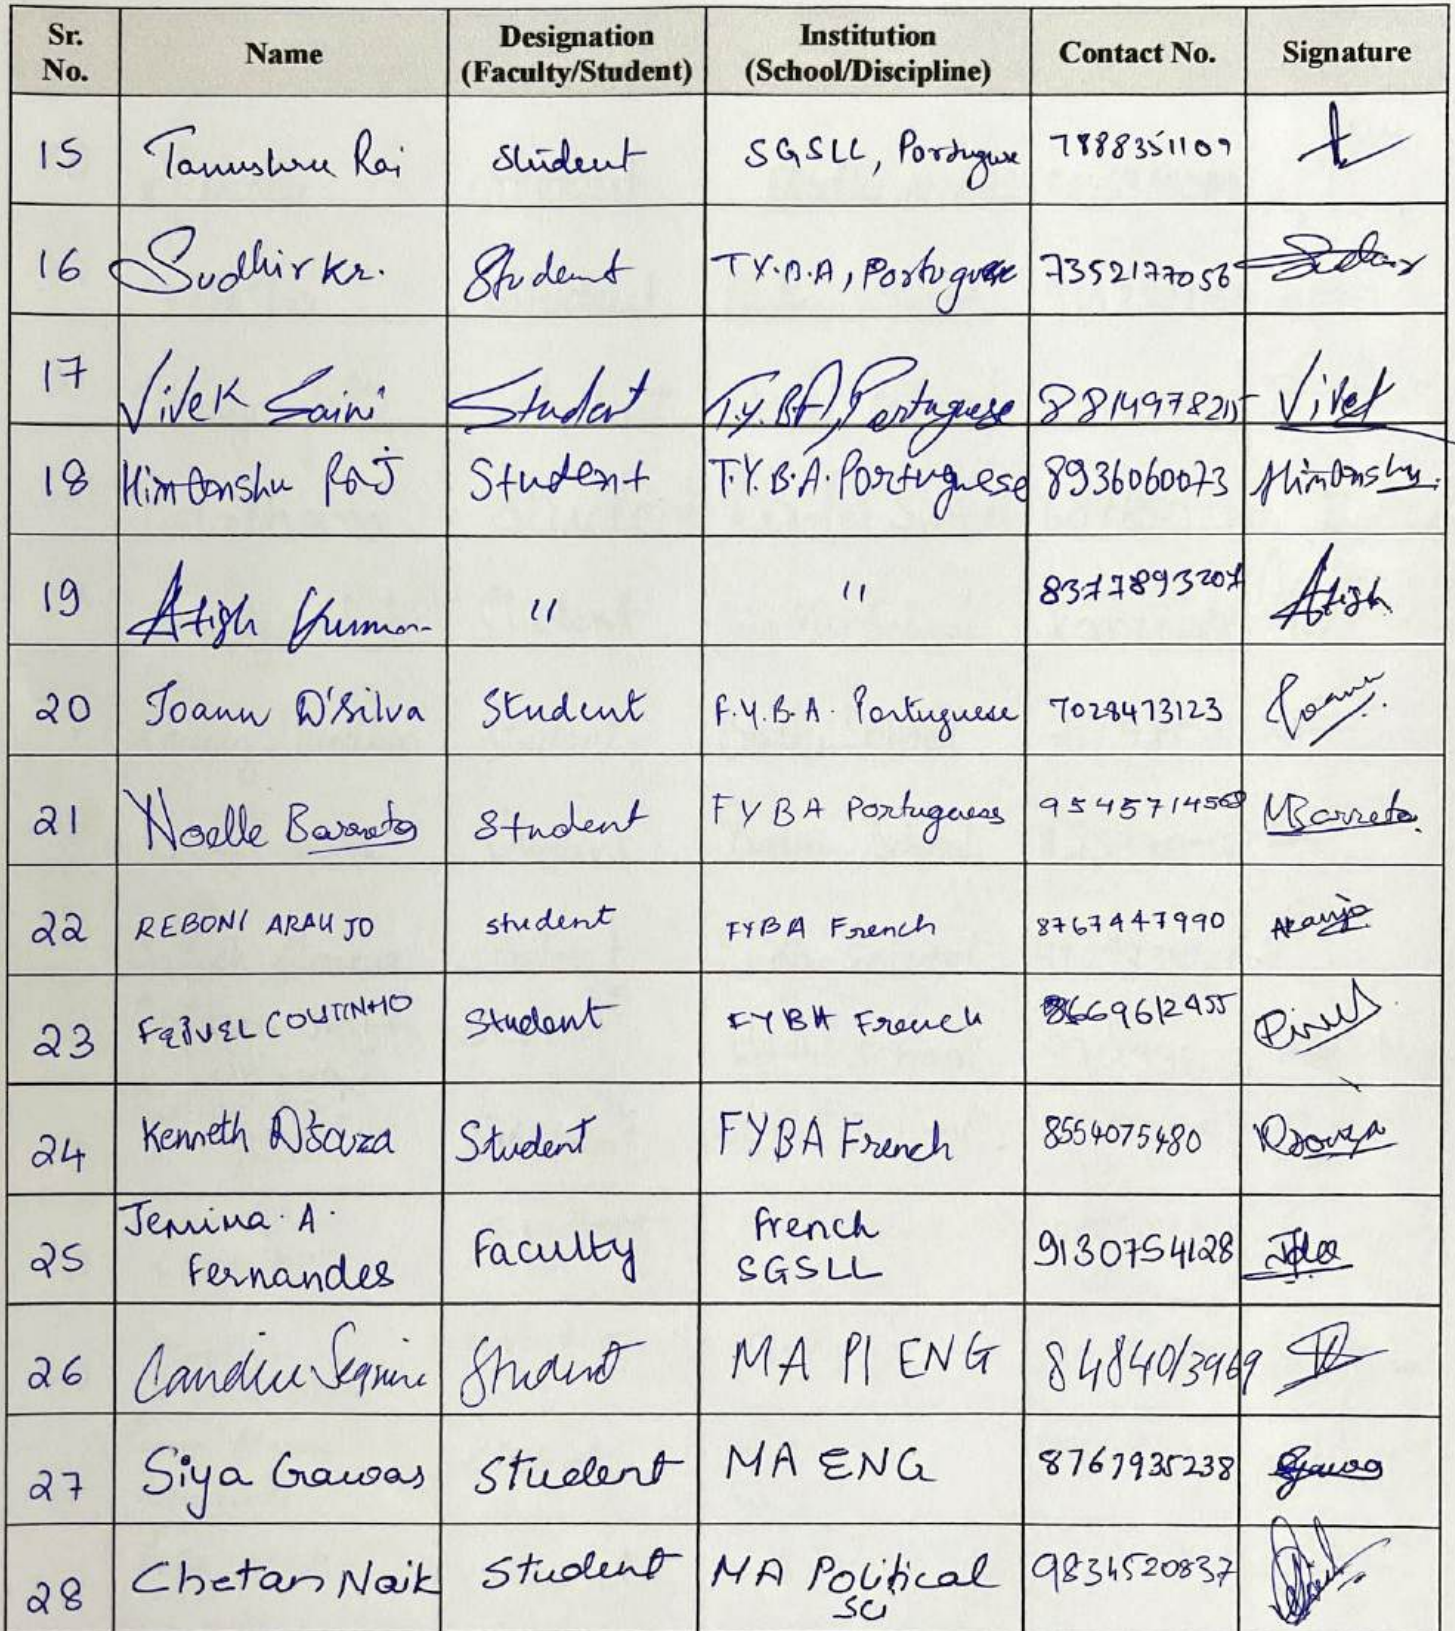 Sr. No. Name Designation (Faculty/Student) Institution (School/Discipline) Contact No. Signature
15 Tanushree Rai Student SGSLL, Portuguese 7888351109
16 Sudhir Kr. Student T.Y.B.A, Portuguese 7352177056 Sudhir
17 Vivek Saini Student T.Y.BA, Portuguese 8814978215 Vivek
18 Himanshu Raj Student T.Y.B.A. Portuguese 8936060073 Himanshu
19 Atish Kumar " " 8377893207 Atish
20 Joann D'Silva Student F.Y.B.A. Portuguese 7028473123 Joann
21 Noelle Barreto Student FYBA Portuguese 9545714568 NBarreto
22 REBONI ARAUJO student FYBA French 8767447990 Araujo
23 COUTINHO Student FYBA French 8669612455
24 Kenneth D'souza Student FYBA French 8554075480 Dsouza
25 Jemima. A. Fernandes Faculty French SGSLL 9130754128
26 Student MA PI ENG 8484013969
27 Siya Gawas Student MA ENG 8767935238 Gawas
28 Chetan Naik Student MA Political Sci 9834520837